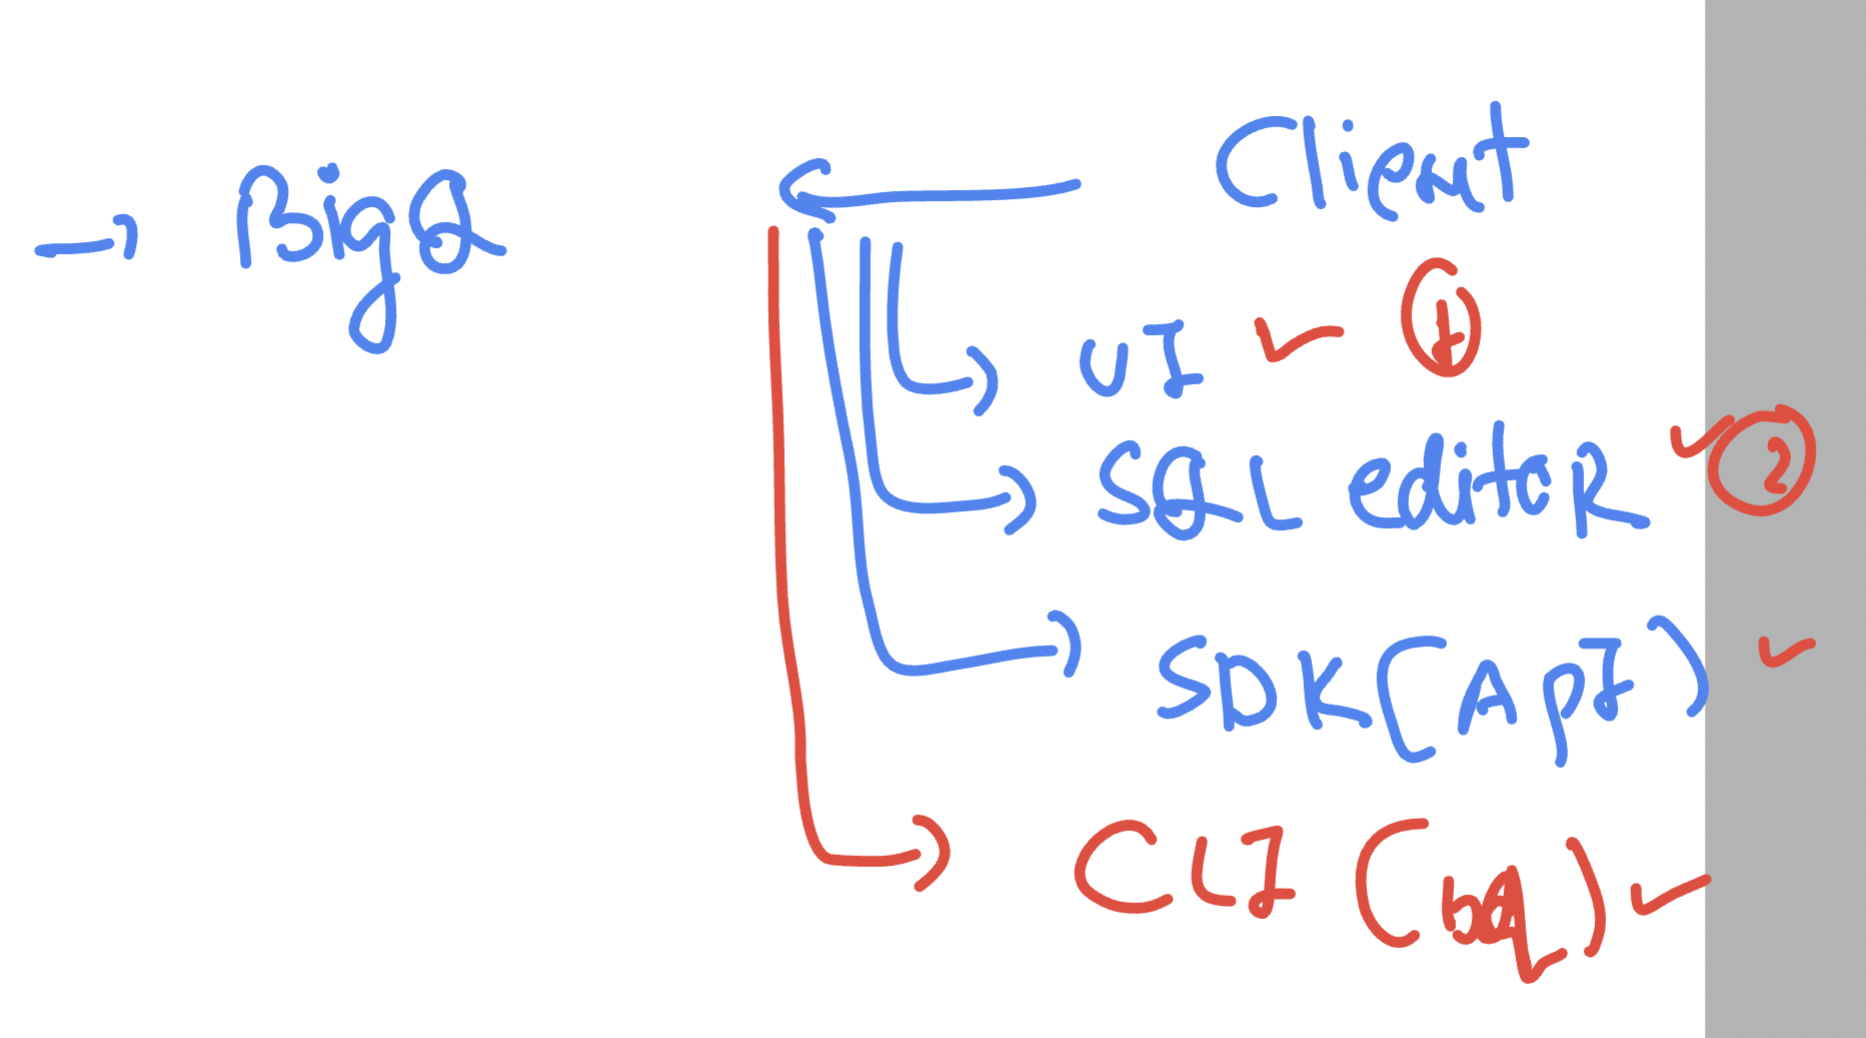 → BigQ ← Client
→ UI ✓ ①
→ SQL editor ✓ ②
→ SDK (API) ✓
→ CLI (bq) ✓